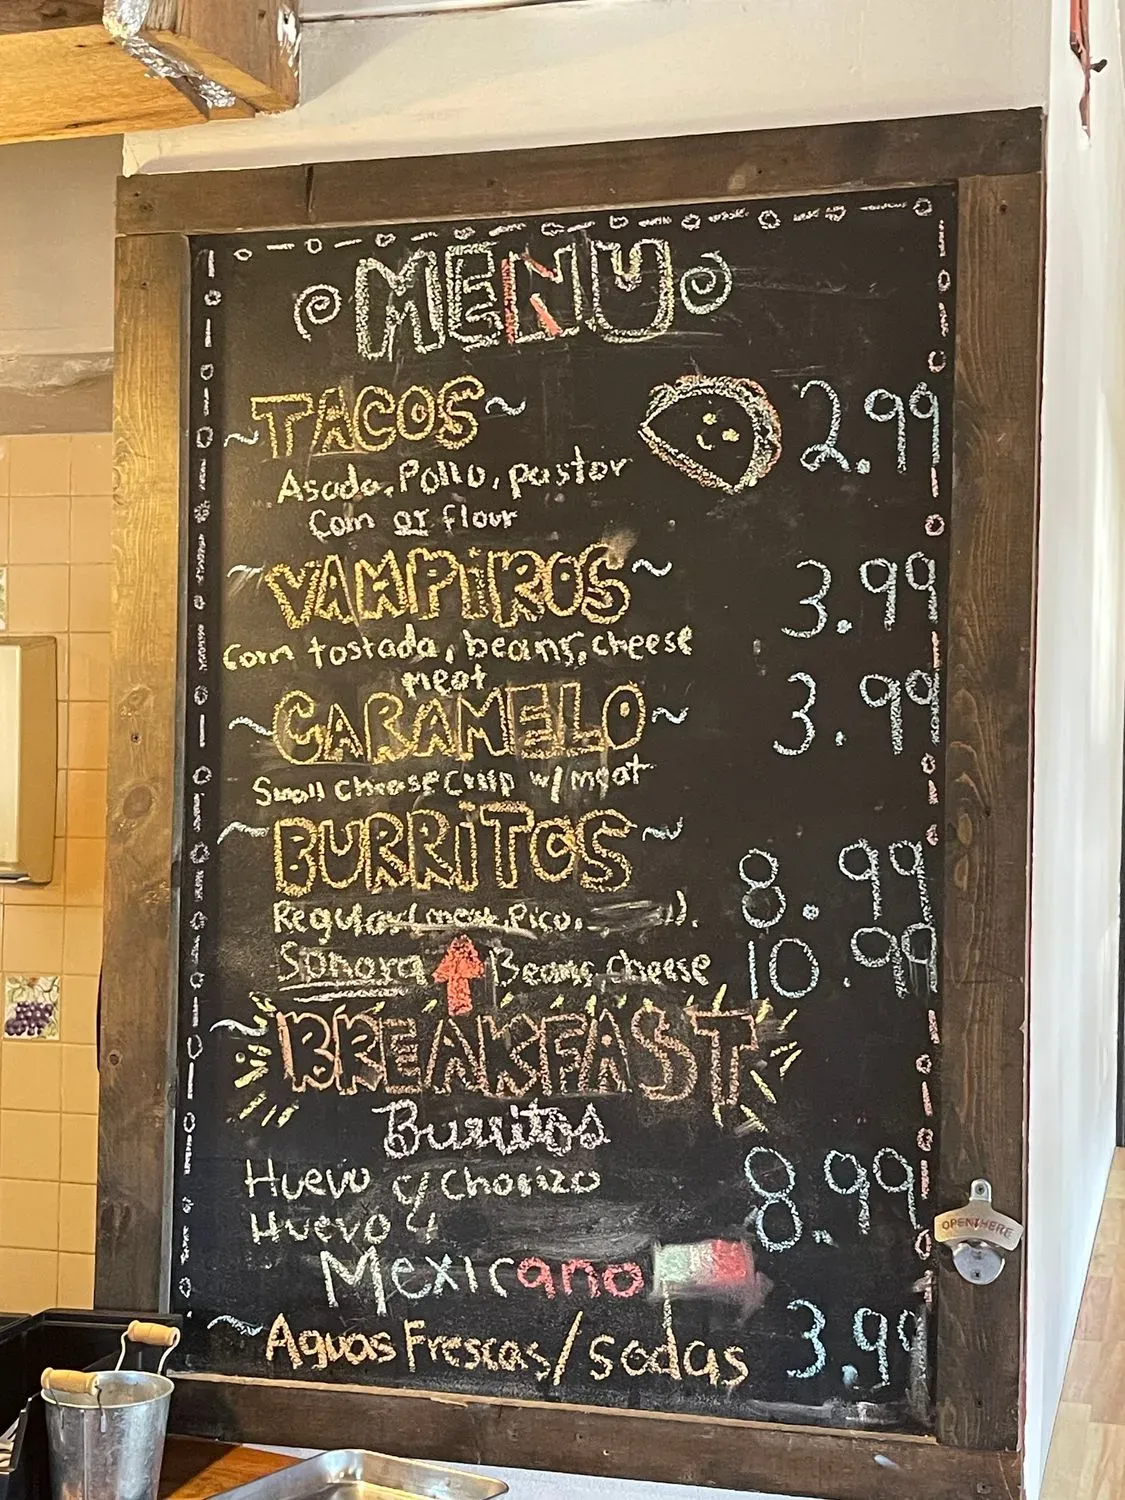 MENU
TACOS 2.99
Asada, Pollo, pastor
Corn or flour
VAMPiROS 3.99
Corn tostada, beans, cheese
meat
CARAMELO 3.99
Small Cheese Crisp w/ meat
BURRiTOS
Regular (meat, Pico, ). 8.99
Sonora Beans, cheese 10.99
BREAKFAST
Burritos
Huevo c/ Chorizo 8.99
Huevo
Mexicano
Aguas Frescas/Sodas 3.99
OPEN HERE